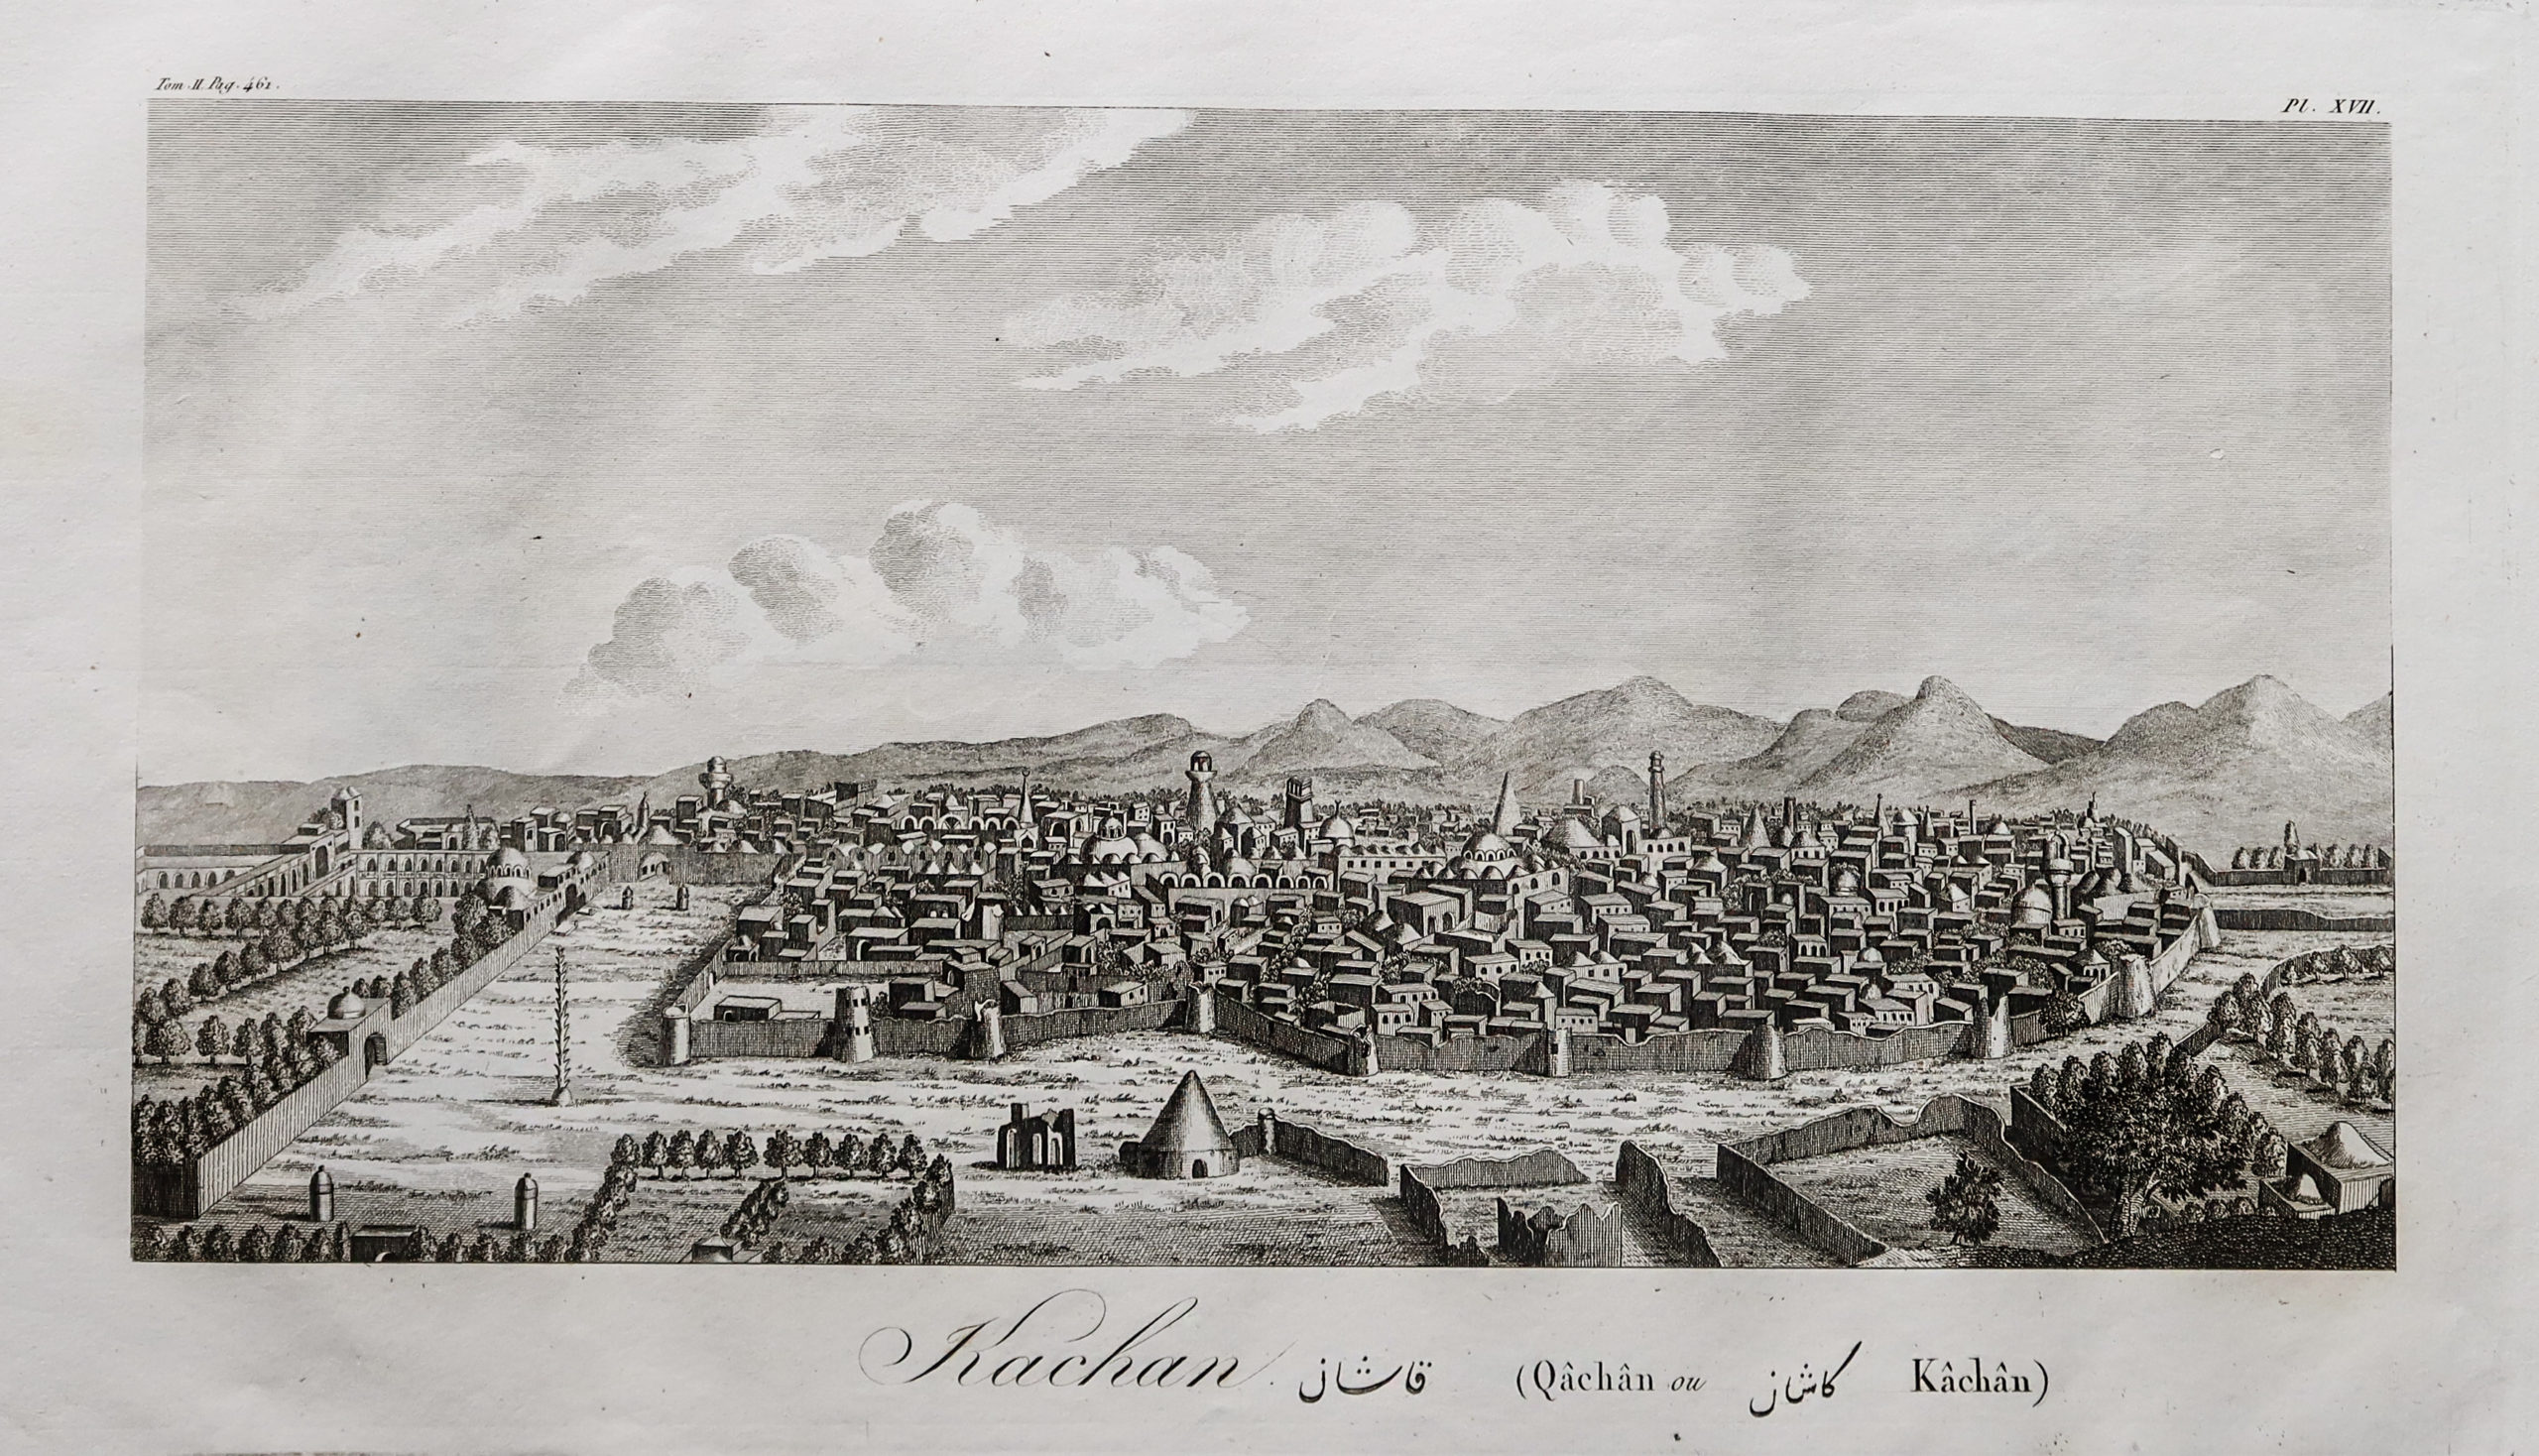 Tom. II. Pag. 461.
Pl. XVII.
Kachan. قاشان (Qâchân ou کاشان Kâchân)